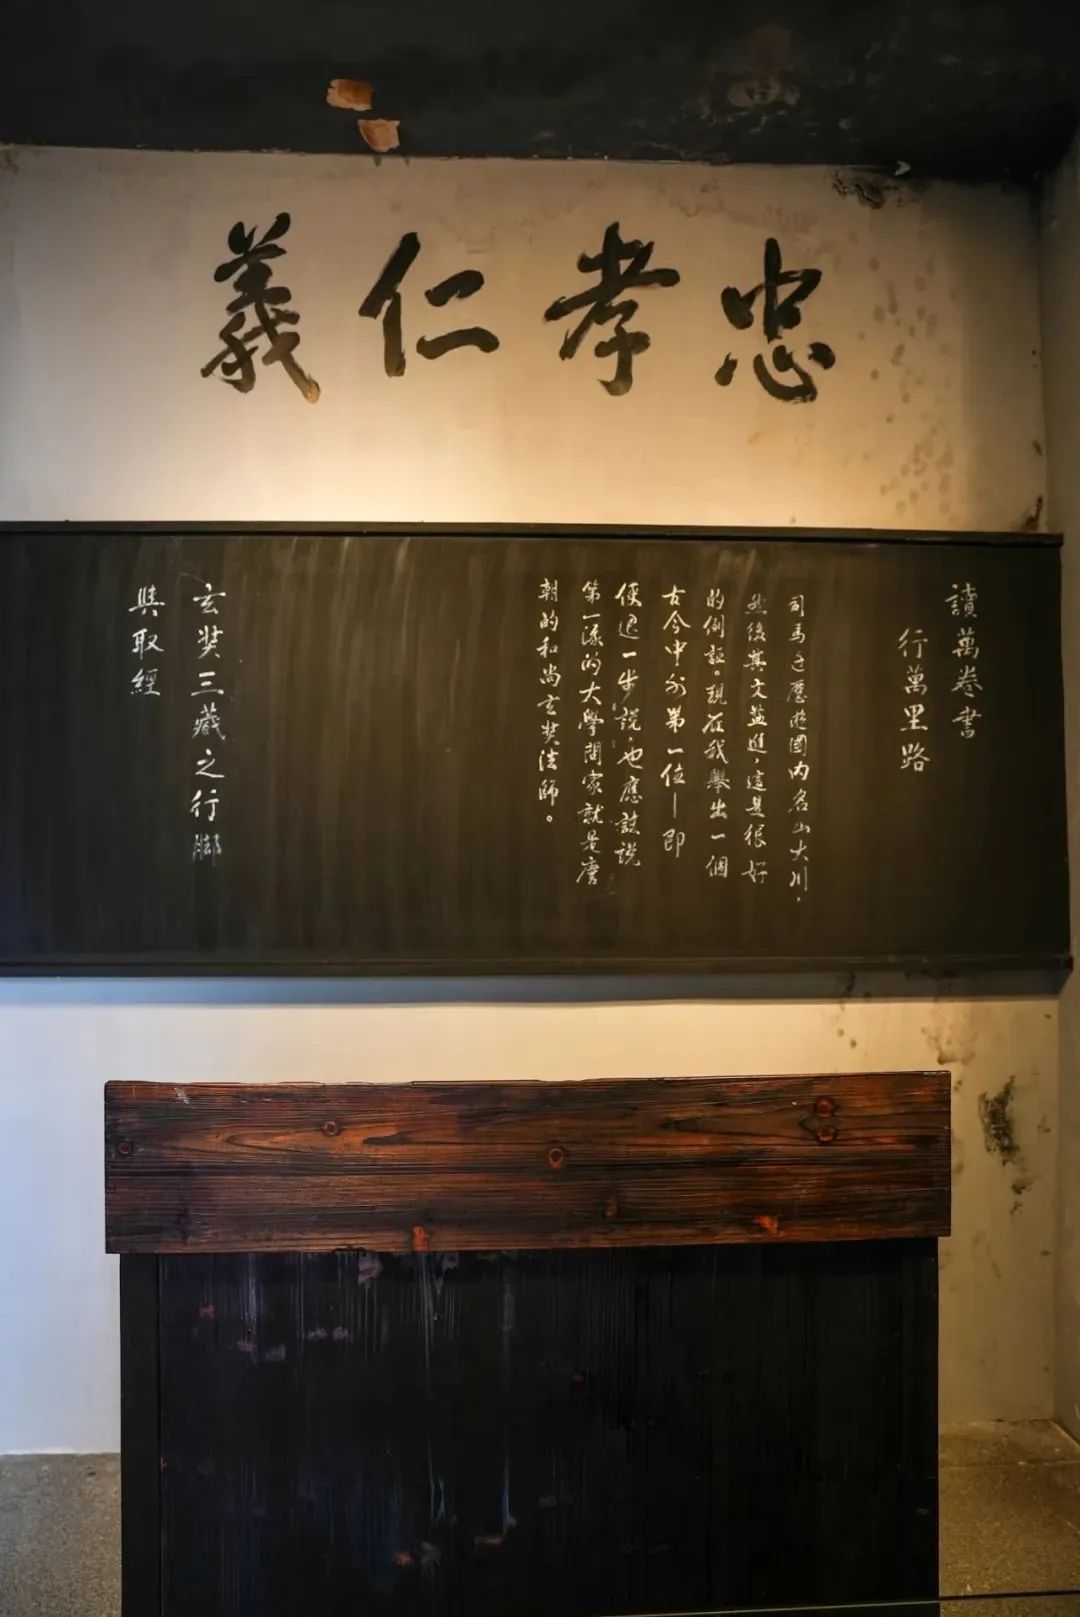 忠孝仁義
讀萬卷書
行萬里路
司馬迁歷遊國内名山大川，
然後其文益進，這是很好
的例証。現在我舉出一個
古今中外第一位—即
便退一步說，也應該说
第一流的大學問家就是唐
朝的和尚玄奘法師。
玄奘三藏之行腳
與取經